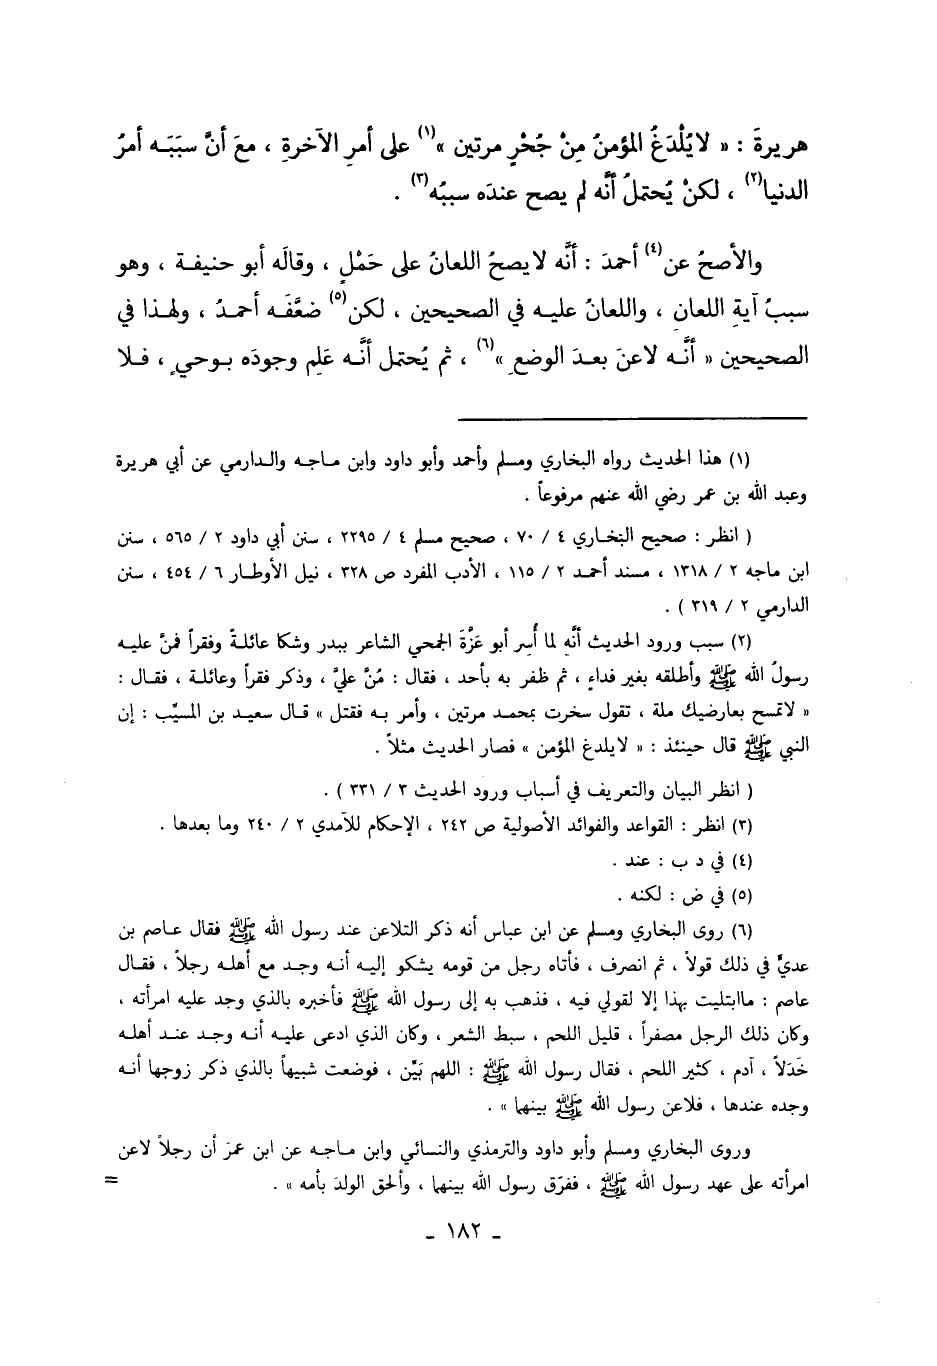 هريرةَ : « لايُلْدَغُ المؤمنُ مِنْ جُحْرٍ مرتين »(١) على أمرِ الآخرةِ ، معَ أنَّ سببَـه أمرُ
الدنيا(٢) ، لكنْ يُحتملُ أنَّه لم يصح عندَه سببُه(٣) .
والأصحُ عن(٤) أحمدَ : أنَّه لا يصحُ اللعانُ على حَمْلٍ ، وقالَه أبو حنيفـة ، وهو
سببُ آيةِ اللعانِ ، واللعانُ عليـه في الصحيحين ، لكن(٥) ضعَّفَـه أحمـدُ ، ولهـذا في
الصحيحين « أنَّـه لاعنَ بعـدَ الوضعِ »(٦) ، ثم يُحتمل أنَّـه عَلِم وجودَه بـوحيٍ ، فـلا
(١) هذا الحديث رواه البخاري ومسلم وأحمد وأبو داود وابن مـاجـه والـدارمي عن أبي هريرة
وعبد الله بن عمر رضي الله عنهم مرفوعاً .
( انظر : صحيح البخاري ٤ / ٧٠ ، صحيح مسلم ٤ / ٢٢٩٥ ، سنن أبي داود ٢ / ٥٦٥ ، سنن
ابن ماجه ٢ / ١٣١٨ ، مسند أحمـد ٢ / ١١٥ ، الأدب المفرد ص ٣٢٨ ، نيل الأوطـار ٦ / ٤٥٤ ، سنن
الدارمي ٢ / ٣١٩ ) .
(٢) سبب ورود الحديث أنَّه لما أُسر أبو عَزَّةَ الجمحي الشاعر ببدر وشكا عائلـةً وفقراً فمنَّ عليـه
رسولُ الله ﷺ وأطلقه بغير فداءٍ ، ثم ظفر به بأحد ، فقال : مُنَّ عليَّ ، وذكر فقراً وعائلـة ، فقـال :
« لاتمسح بعارضيك ملة ، تقول سخرت بمحمـد مرتين ، وأمر بـه فقتل » قـال سعيـد بن المسيِّب : إن
النبي ﷺ قال حينئذ : « لايلدغ المؤمن » فصار الحديث مثلاً .
( انظر البيان والتعريف في أسباب ورود الحديث ٣ / ٣٣١ ) .
(٣) انظر : القواعد والفوائد الأصولية ص ٢٤٢ ، الإحكام للآمدي ٢ / ٢٤٠ وما بعدها .
(٤) في د ب : عند .
(٥) في ض : لكنه .
(٦) روى البخاري ومسلم عن ابن عباس أنه ذكر التلاعن عند رسول الله ﷺ فقال عـاصم بن
عديٍّ في ذلك قولاً ، ثم انصرف ، فأتاه رجل من قومه يشكو إليـه أنـه وجـد مع أهلـه رجلاً ، فقـال
عاصم : ماابتليت بهذا إلا لقولي فيه ، فذهب به إلى رسول الله ﷺ فأخبره بالذي وجد عليه امرأته ،
وكان ذلك الرجل مصفراً ، قليل اللحم ، سبط الشعر ، وكان الذي ادعى عليـه أنـه وجـد عنـد أهلـه
خَدَلاً ، آدم ، كثير اللحم ، فقال رسول الله ﷺ : اللهم بَيِّن ، فوضعت شبيهاً بالذي ذكر زوجها أنـه
وجده عندها ، فلاعن رسول الله ﷺ بينهما » .
وروى البخاري ومسلم وأبو داود والترمذي والنسائي وابن مـاجـه عن ابن عمرَ أن رجلاً لاعن
امرأته على عهد رسول الله ﷺ ، ففرّق رسول الله بينهما ، وألحق الولدَ بأمه » . =
ـ ١٨٢ ـ